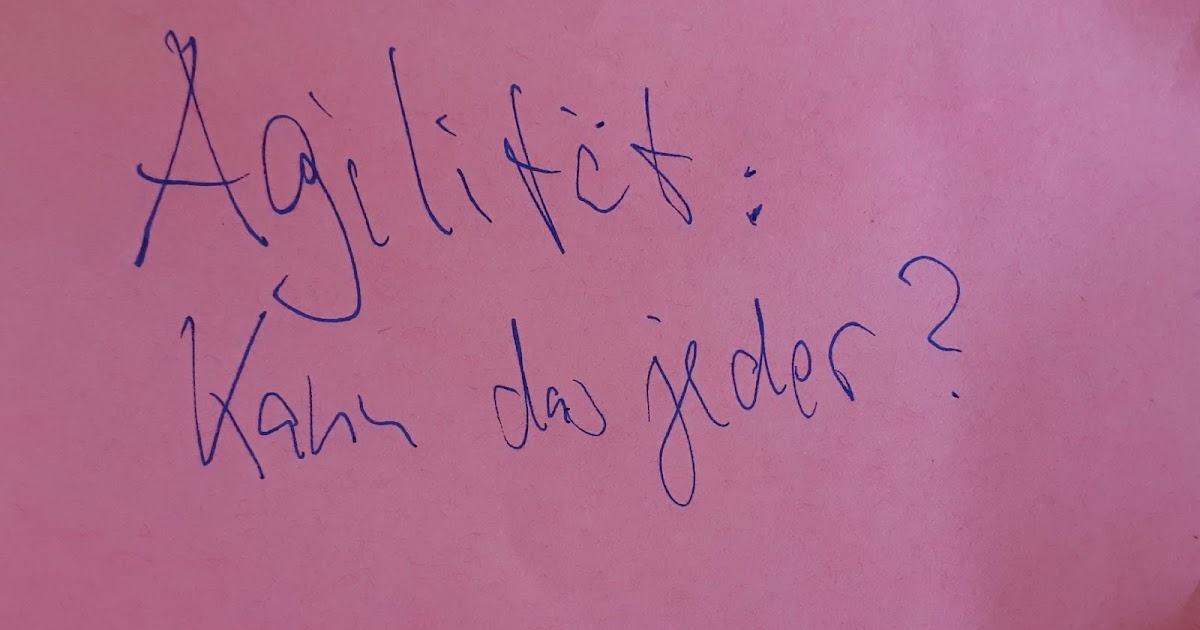 Agilität:
Kann das jeder?